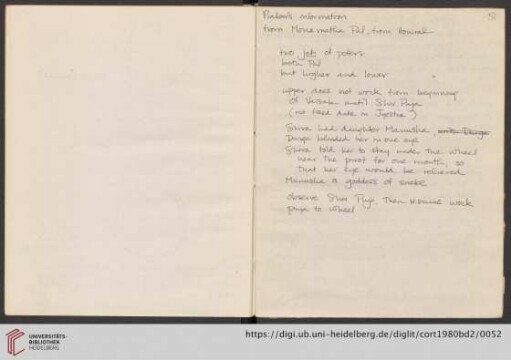 information
from Monamatha Pal, from
two jati of potters
both Pal
but higher and lower
upper does not work from beginning
of Vaisak until Shiv Puja
(no fixed date in Jyestha)
Shiva had daughter Manasha,
Durga blinded her in one eye
Shiva told her to stay under the wheel
near the pivot for one month, so
that her eye would be relieved
Manasha is goddess of snake
observe Shiv Puja, then resume work
puja to wheel
UNIVERSITÄTS-
BIBLIOTHEK
HEIDELBERG
https://digi.ub.uni-heidelberg.de/diglit/cort1980bd2/0052